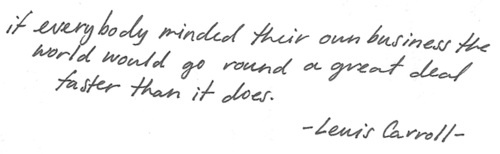 if everybody minded their own business the
world would go round a great deal
faster than it does.
-Lewis Carroll-